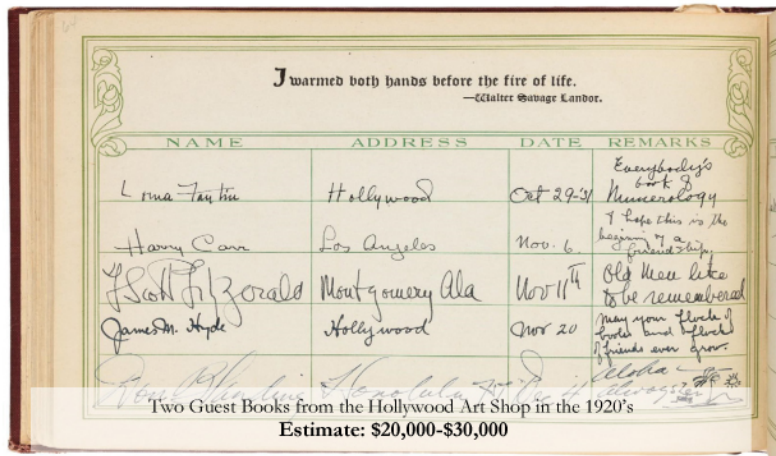 64
I warmed both hands before the fire of life.
—Walter Savage Landor.
NAME ADDRESS DATE REMARKS
Lorna Fantin Hollywood Oct 29-31 Everybody's
book of
Numerology
Harry Carr Los Angeles Nov. 6. I hope this is the
begining of a
friendship.
F Scott Fitzgerald Montgomery Ala Nov 11th Old Men like
to be remembered
James M. Hyde Hollywood Nov 20 may your flock of
books and flock
of friends ever grow.
Don Blanding Honolulu Dec 4 Aloha
always
Two Guest Books from the Hollywood Art Shop in the 1920's
Estimate: $20,000-$30,000